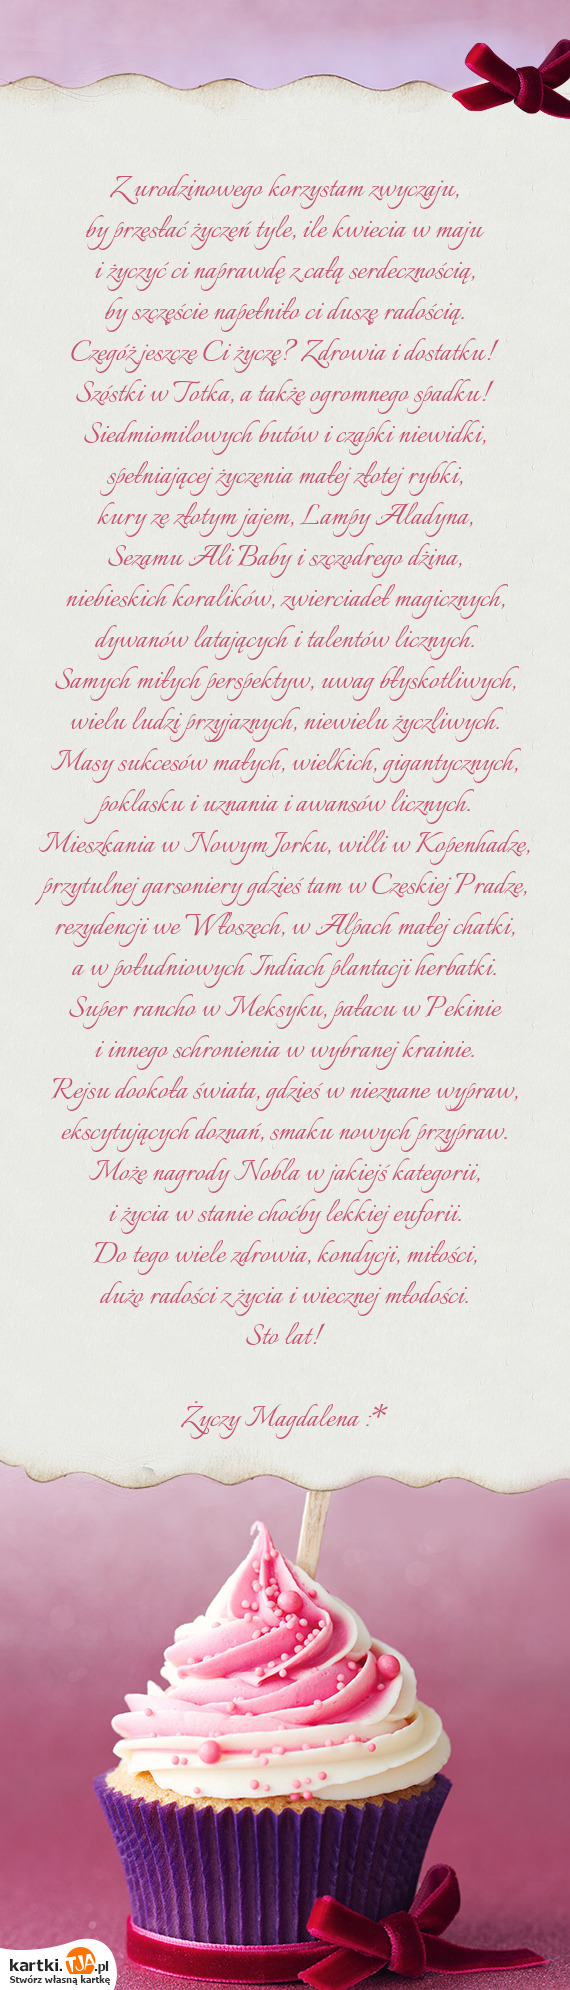 Z urodzinowego korzystam zwyczaju,
by przesłać życzeń tyle, ile kwiecia w maju
i życzyć ci naprawdę z całą serdecznością,
by szczęście napełniło ci duszę radością.
Czegóż jeszcze Ci życzę? Zdrowia i dostatku!
Szóstki w Totka, a także ogromnego spadku!
Siedmiomilowych butów i czapki niewidki,
spełniającej życzenia małej złotej rybki,
kury ze złotym jajem, Lampy Aladyna,
Sezamu Ali Baby i szczodrego dżina,
niebieskich koralików, zwierciadeł magicznych,
dywanów latających i talentów licznych.
Samych miłych perspektyw, uwag błyskotliwych,
wielu ludzi przyjaznych, niewielu życzliwych.
Masy sukcesów małych, wielkich, gigantycznych,
poklasku i uznania i awansów licznych.
Mieszkania w Nowym Jorku, willi w Kopenhadze,
przytulnej garsoniery gdzieś tam w Czeskiej Pradze,
rezydencji we Włoszech, w Alpach małej chatki,
a w południowych Indiach plantacji herbatki.
Super rancho w Meksyku, pałacu w Pekinie
i innego schronienia w wybranej krainie.
Rejsu dookoła świata, gdzieś w nieznane wypraw,
ekscytujących doznań, smaku nowych przypraw.
Może nagrody Nobla w jakiejś kategorii,
i życia w stanie choćby lekkiej euforii.
Do tego wiele zdrowia, kondycji, miłości,
dużo radości z życia i wiecznej młodości.
Sto lat!
Życzy Magdalena :*
kartki.TJA.pl
Stwórz własną kartkę